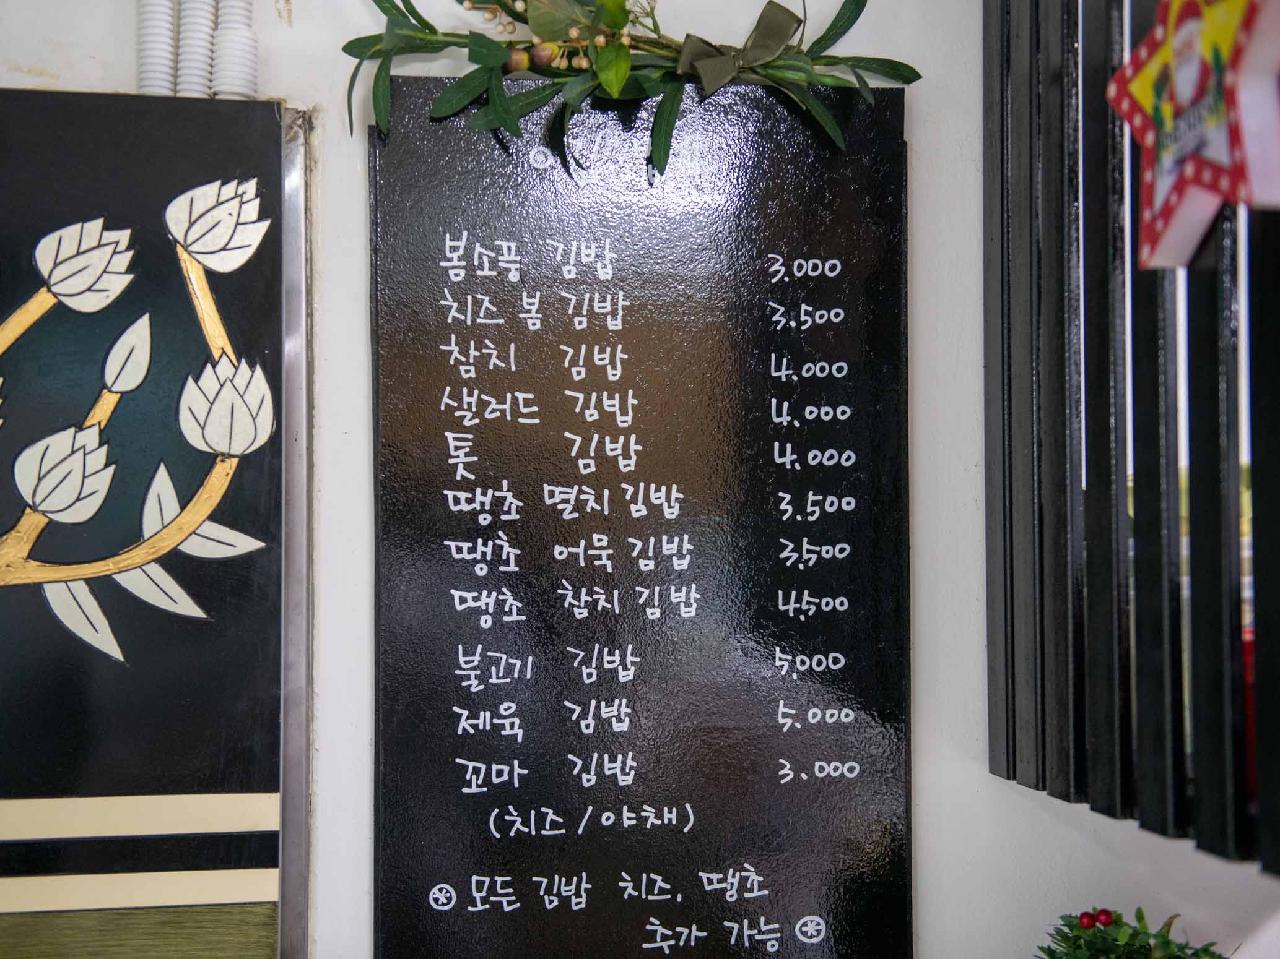 봄소풍 김밥 3.000
치즈 봄 김밥 3.500
참치 김밥 4.000
샐러드 김밥 4.000
톳 김밥 4.000
땡초 멸치 김밥 3.500
땡초 어묵 김밥 3.500
땡초 참치 김밥 4.500
불고기 김밥 5.000
제육 김밥 5.000
꼬마 김밥 3.000
(치즈/야채)
모든 김밥 치즈, 땡초
추가 가능